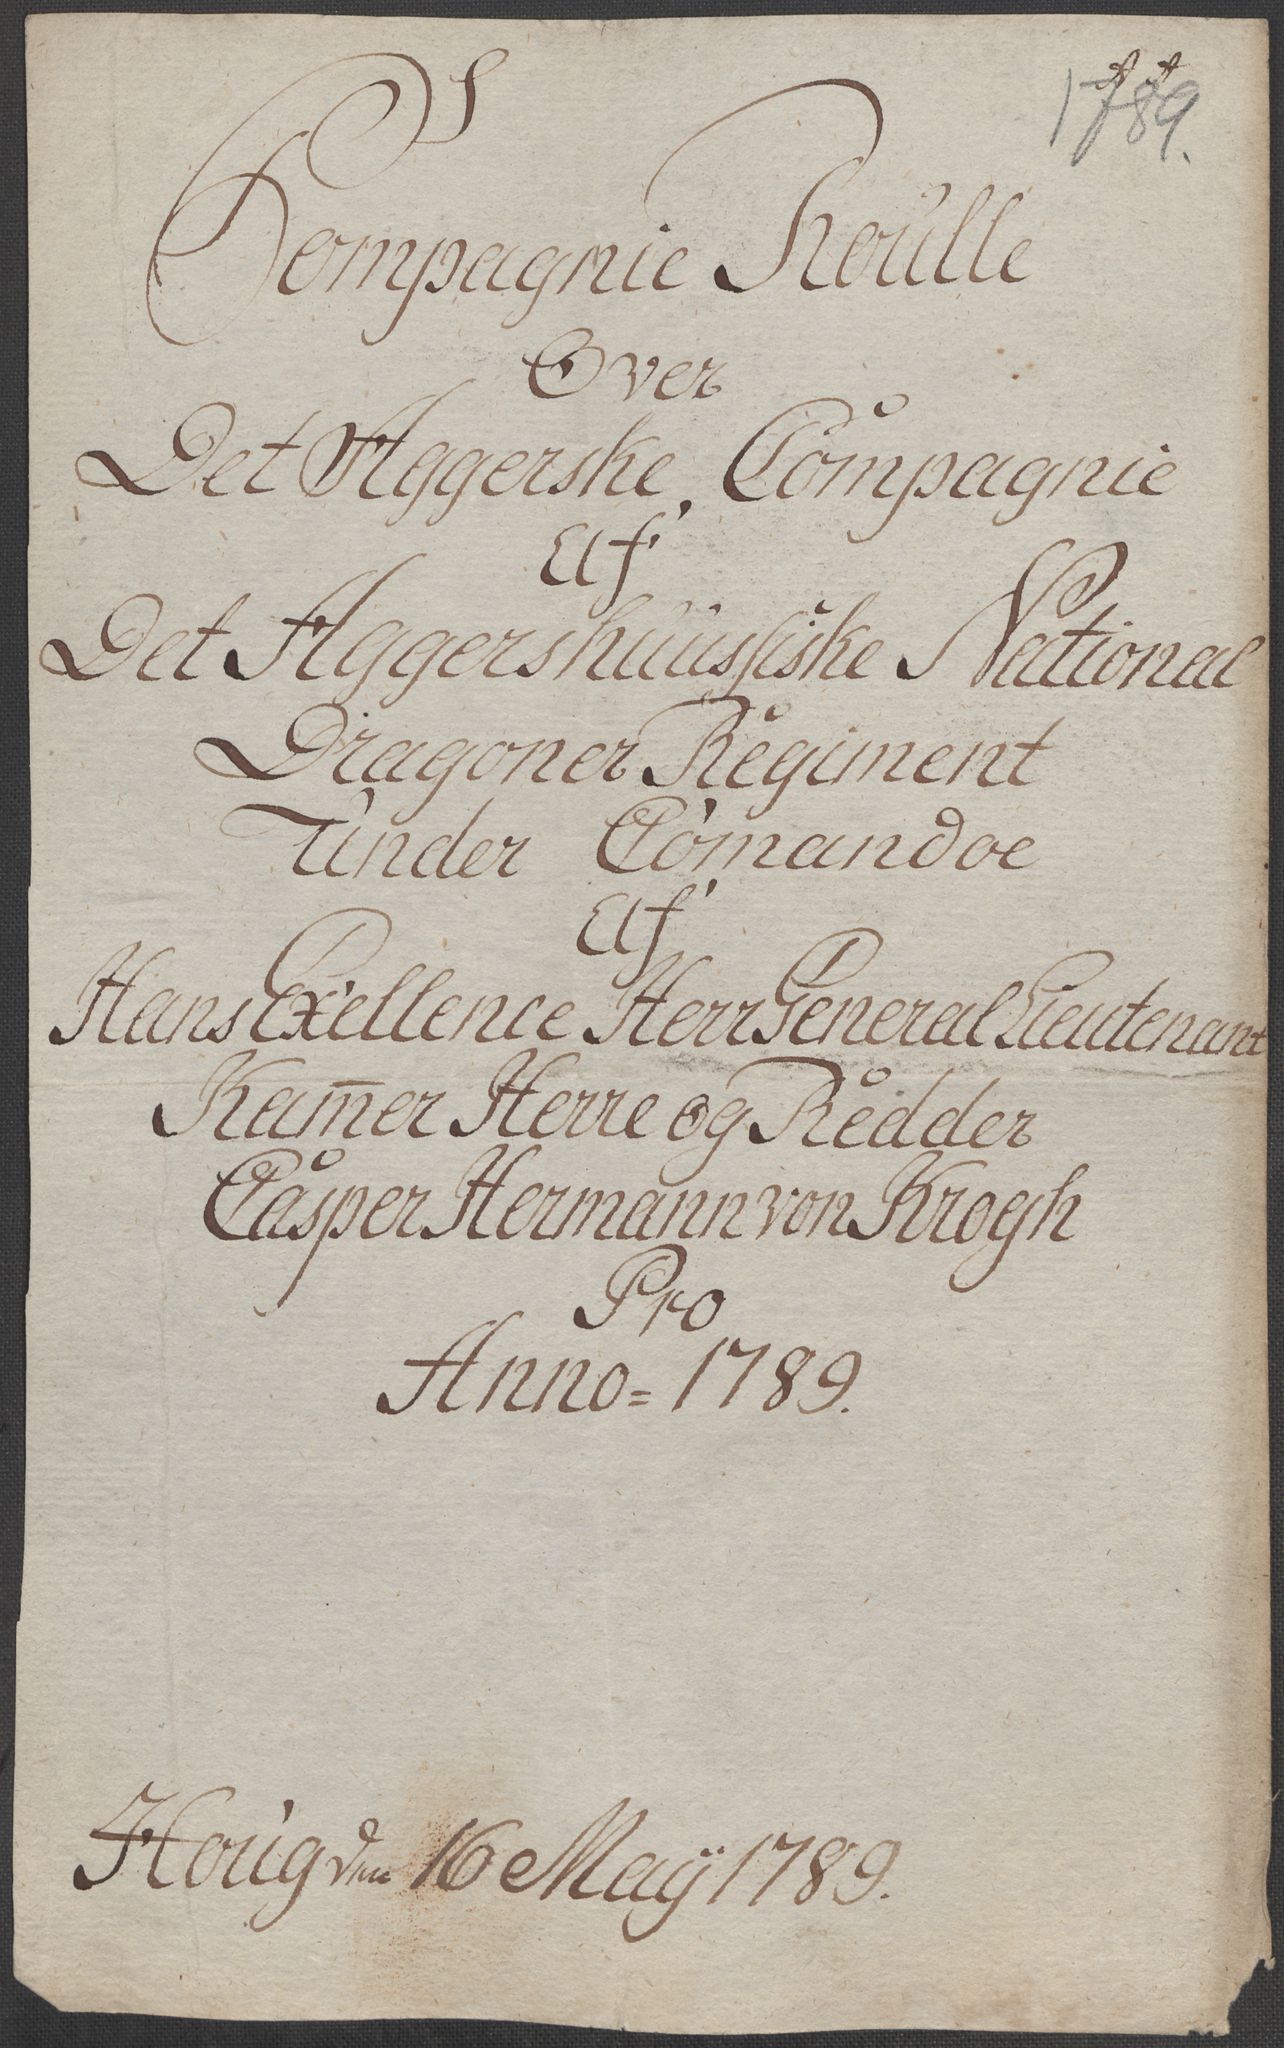 1789.
Compagnie Roulle
Over
Det Aggerske Compagnie
Af
Det Aggershuusiske National
Dragoner Regiment
Under Com̅andoe
Af
Hans Exellence Herr General Lieutenant
Kam̅er Herre og Redder
Casper Hermann von Krogh
Pro
Anno = 1789.
Houg den 16 Maÿ 1789.